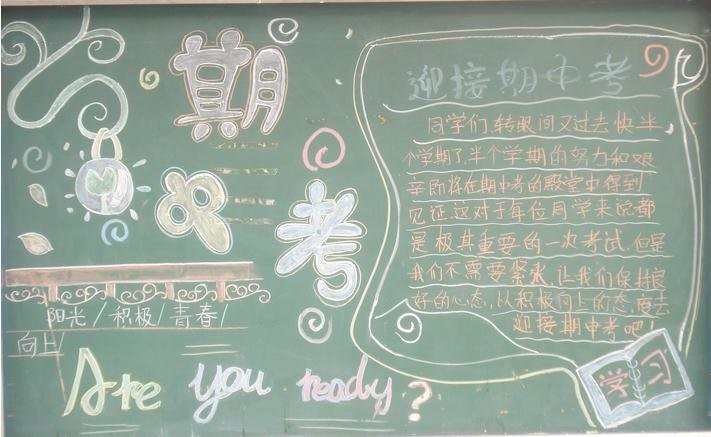 期
中
考
阳光/积极/青春/
向上
Are you ready?
迎接期中考
同学们,转眼间又过去快半
个学期了,半个学期的努力和艰
辛即将在期中考的殿堂中得到
见证,这对于每位同学来说都
是极其重要的一次考试,但是
我们不需要紧张,让我们保持良
好的心态,以积极向上的态度去
迎接期中考吧!
学习